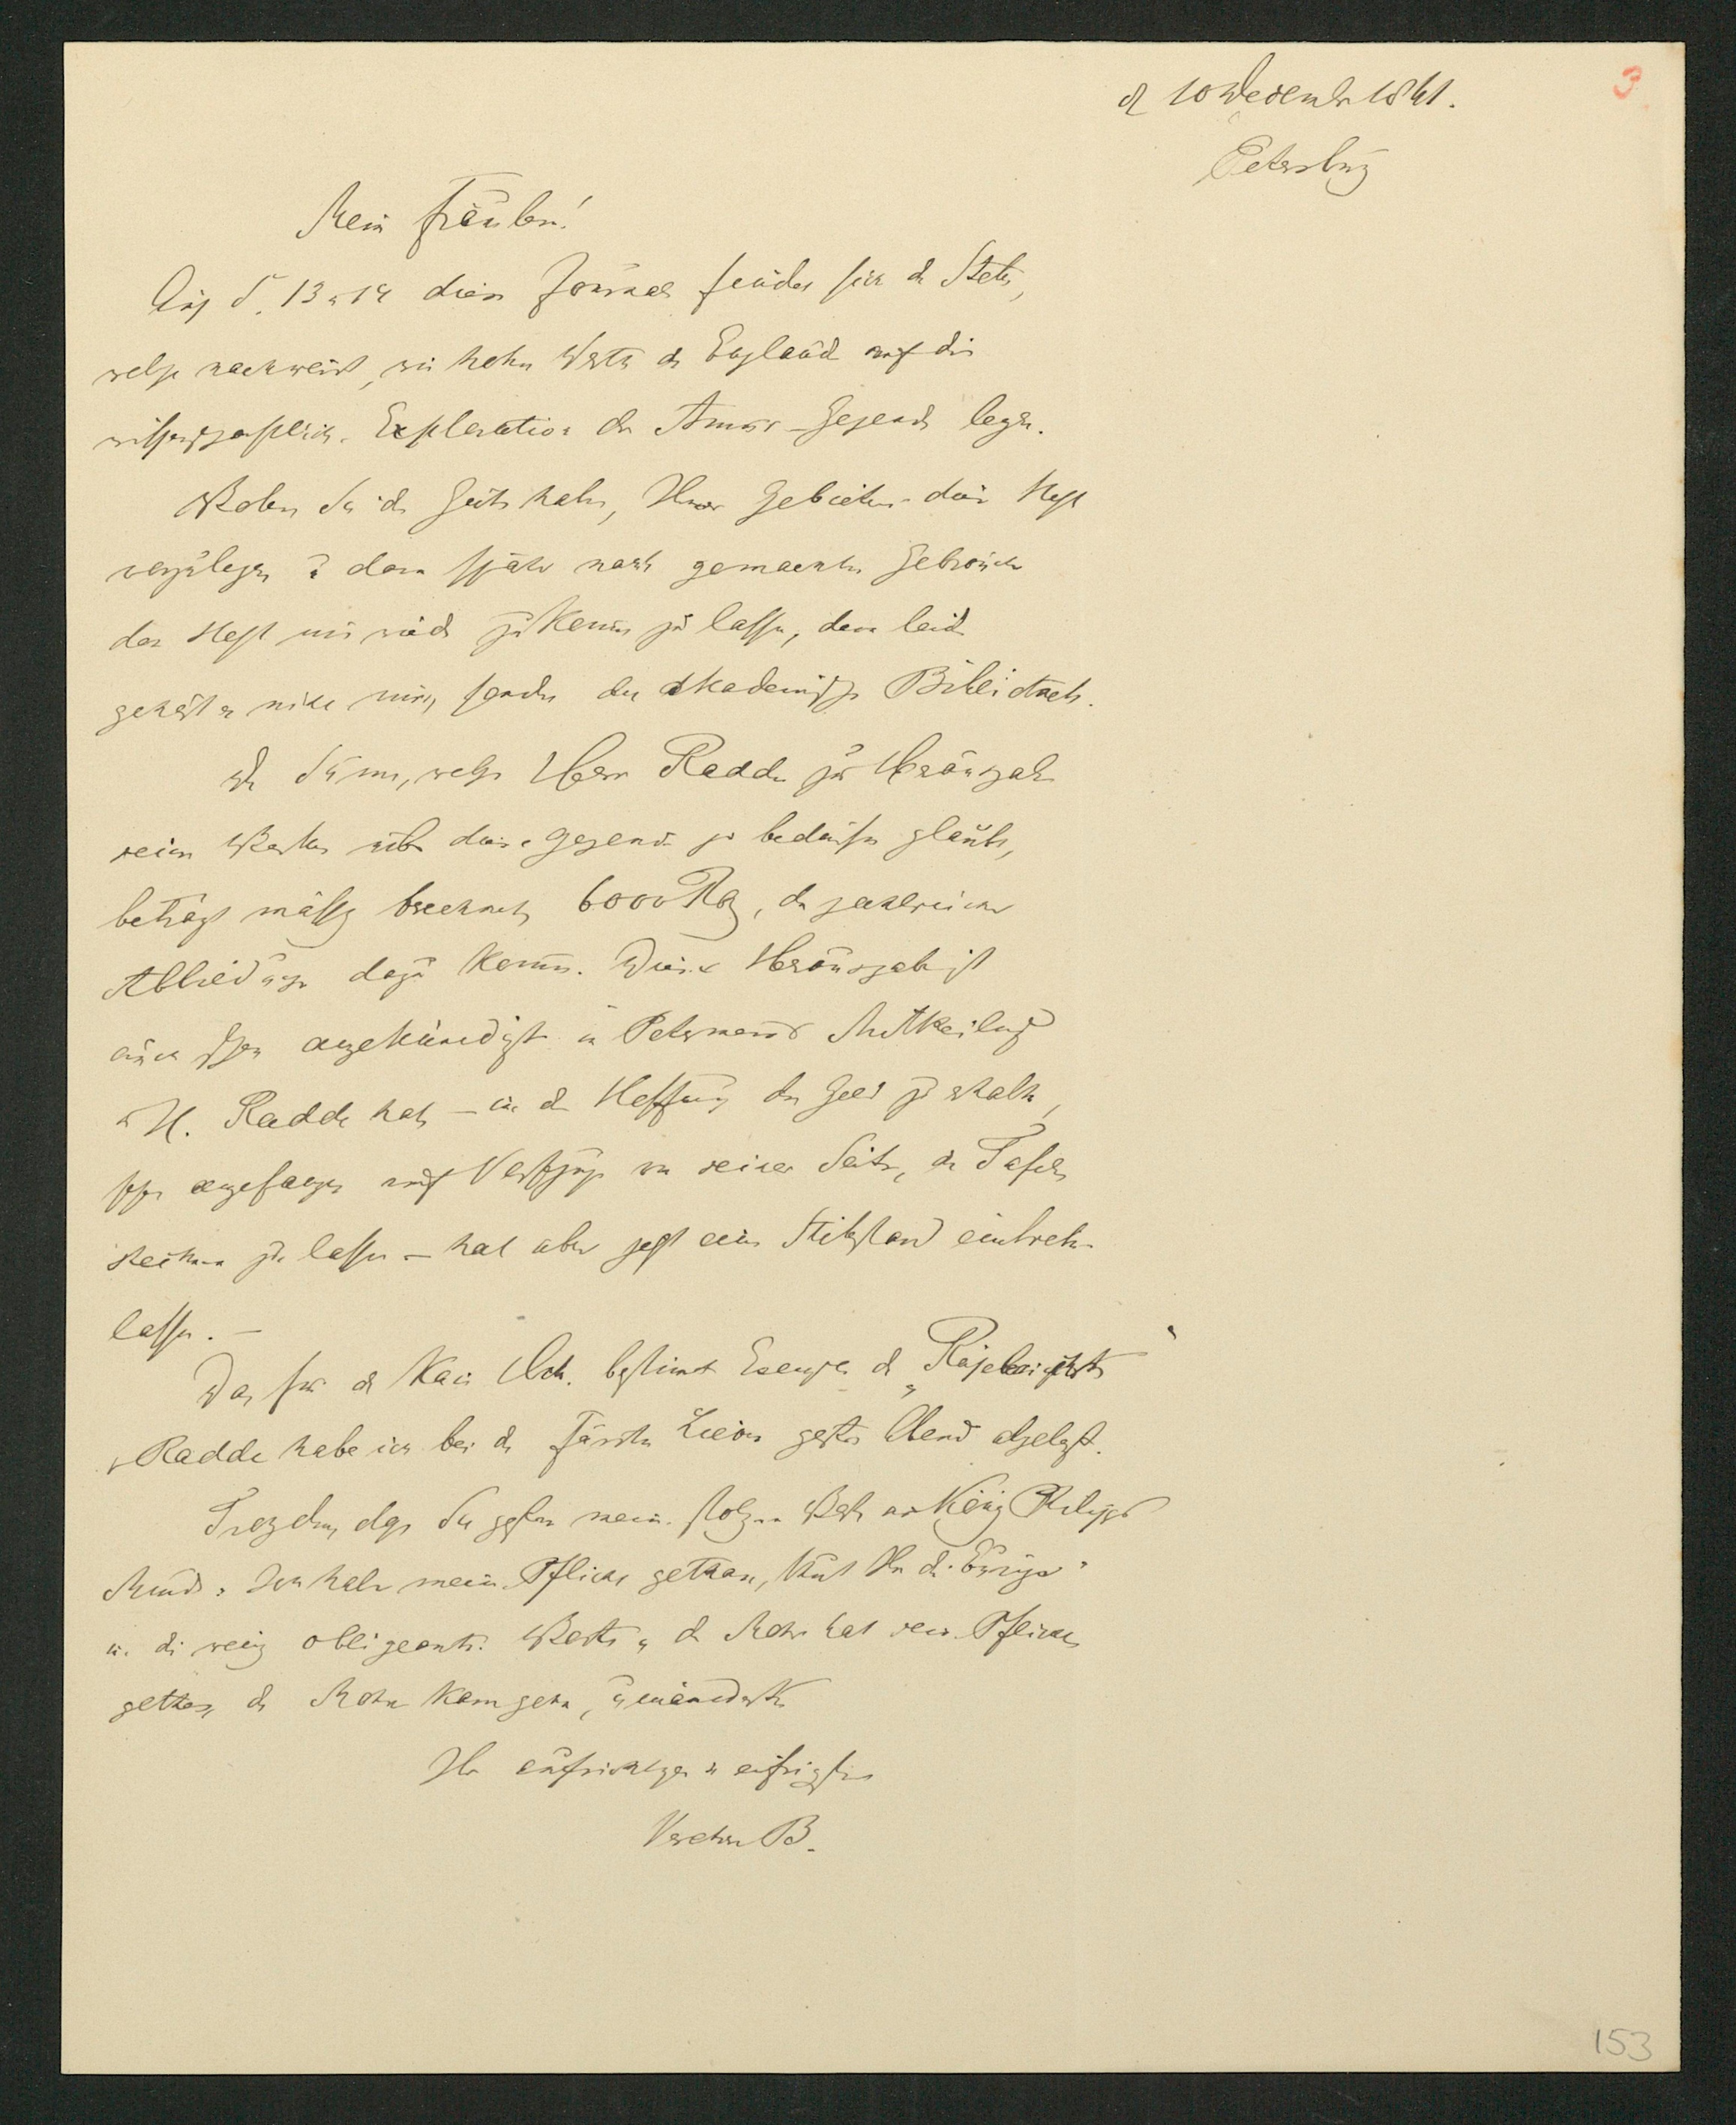 d 10 December 1861.
3
Petersburg
Mein Fräulein!
Auf S. 13 u 14 dieses Journals findet sich die Stelle,
welche nachweist, wie hohen Werth die Engländ auf die
wissenschaftlich. Exploration der Amur-Gegend legen.
Wollen Sie die Güte haben, Ihrer Gebieterin dies Heft
vorzulegen u dann später nach gemachtem Gebrauche
das Heft mir wieder zukommen zu lassen, denn leider
gehört es nicht mir, sondern der Akademischen Bibliothek.
Die Summe, welche Herr Radde zur Herausgabe
seines Werkes über diese Gegend zu bedürfen glaubt,
beträgt mässig berechnet 6000 R, da zahlreiche
Abbildungen dazu kommen. Diese Herausgabe ist
auch schon angekündigt in Petermanns Mittheilung
u H. Radde hat – in der Hoffnung das Geld zu erhalten,
schon angefangen auf von seiner Seite, die Tafeln
stechen zu lassen – hat aber jetzt einen Stillstand eintreten
lassen. –
Das für die Kais bestimmte Exemplar des „Reiseberichts“
v Radde habe ich bei der Fürstin Lieven gestern Abend abgelegt.
Trozdem dass Sie gestern meine stolzen Worte aus König Philipps
Munde: Ich habe meine Pflicht gethan, thut Ihr die Eurige"
in die wenig obligeanten Worte „der Mohr hat seine Pflicht
gethan, der Mohr kann gehn, umänderten
Ihr aufrichtiger u eifrigster
Verehrer B.
153